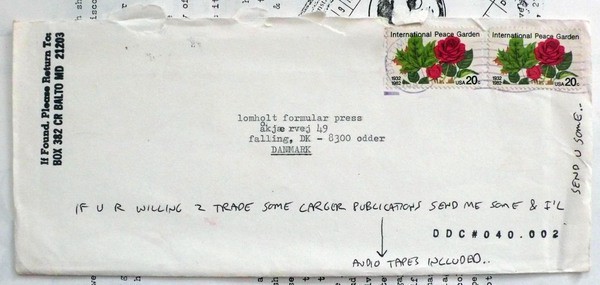 If Found, Please Return To:
BOX 382 CR BALTO MD 21203
International Peace Garden
1932
1982
USA 20c
International Peace Garden
1932
1982
USA 20c
lomholt formular press
åkjærvej 49
falling, DK - 8300 odder
DANMARK
IF U R WILLING 2 TRADE SOME LARGER PUBLICATIONS SEND ME SOME & I'LL
SEND U SOME..
DDC#040.002
AUDIO TAPES INCLUDED..